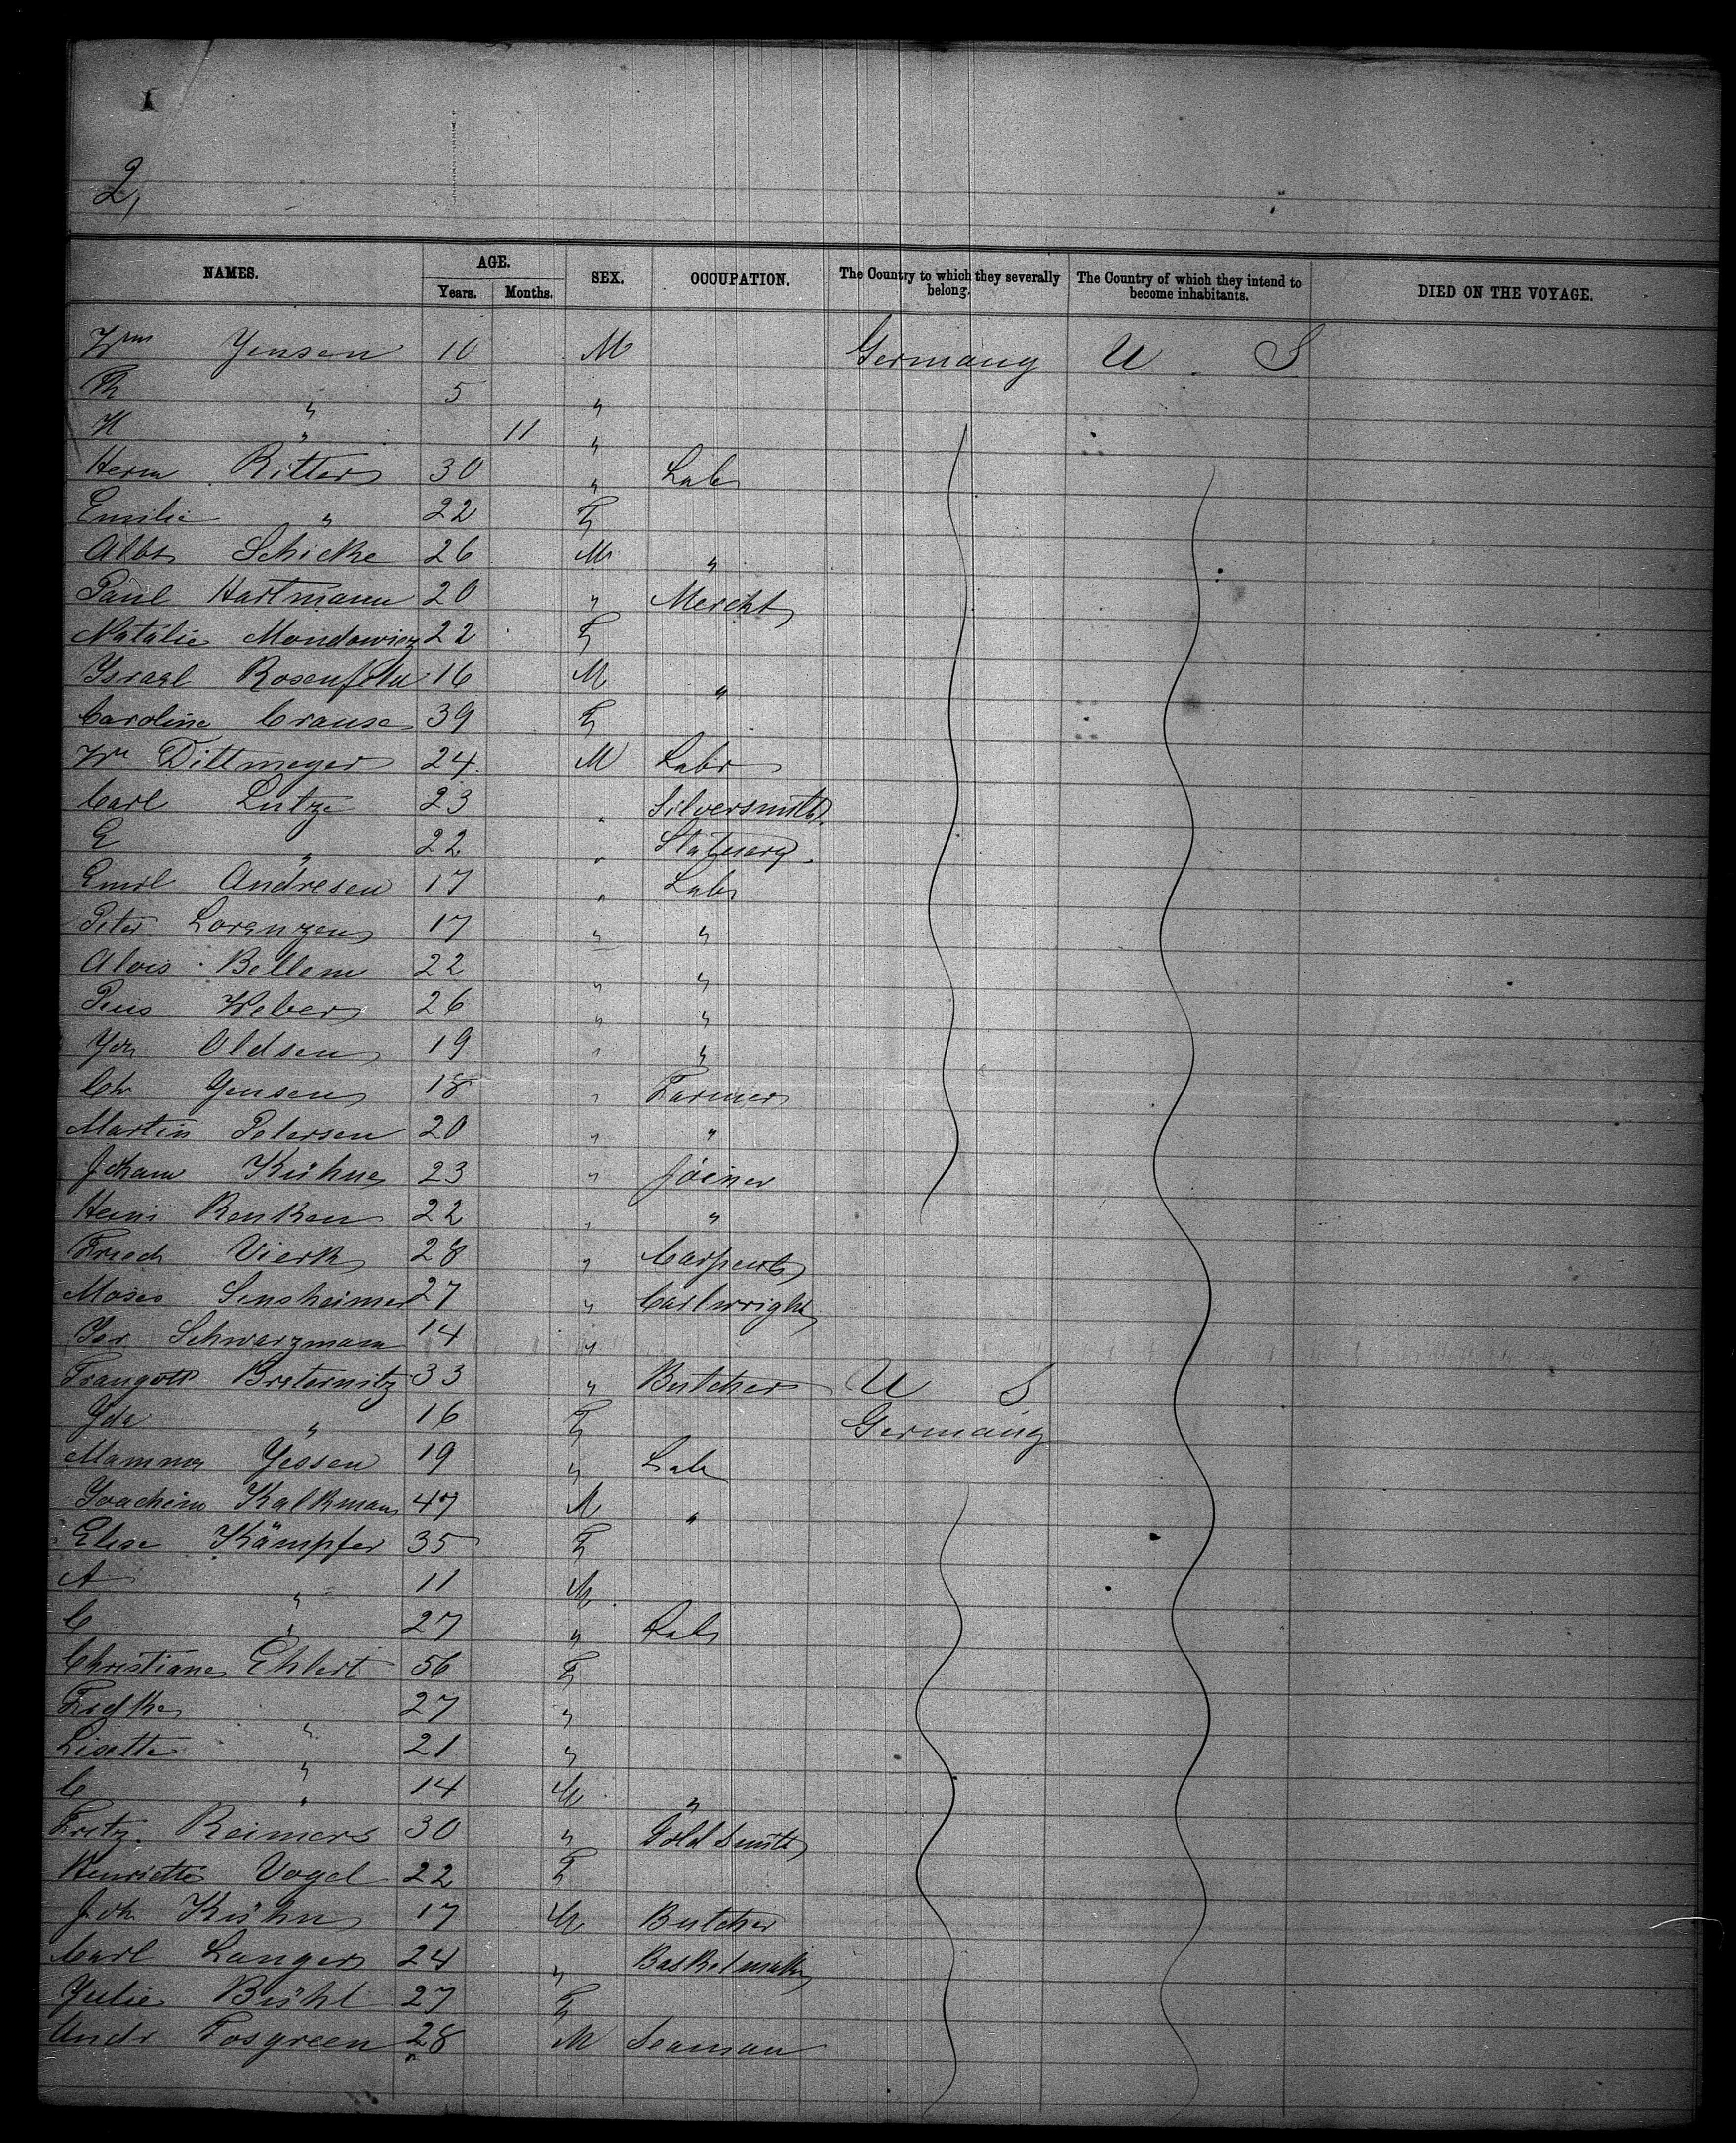 2,
NAMES. AGE. SEX. OCCUPATION. The Country to which they severally belong. The Country of which they intend to become inhabitants. DIED ON THE VOYAGE.
Years. Months.
Wm Jensen 10 M Germany U S
Th " 5 "
H " 11 "
Herm Ritter 30 " Lab
Emilie " 22 F
Albt Schicke 26 M "
Paul Hartmann 20 " Mercht
Natalie 22 F
Israel Rosenfeld 16 M "
Caroline Crause 39 F
Wm Dittmeyer 24 M Labr
Carl Lutze 23 " Silversmith
E " 22 " Statuary
Emil Andresen 17 " Lab
Peter Lorenzen 17 " "
Alois Bellem 22 " "
Pius Weber 26 " "
Joh Oldsen 19 " "
Chr Jensen 18 " Farmer
Martin Petersen 20 " "
Joham Kühne 23 " Joiner
Heini Renken 22 " "
Friedr Vierk 28 " Carpent
Moses Sinsheimer 27 " Cartwright
Schwarzmann 14 "
Traugott Breternitz 33 " Butcher U S
Ida " 16 F Germany
Mamma Jessen 19 " Lab
Joachim Kalkman 47 M "
Elise Kämpfer 35 F
A " 11 M
C " 27 " Lab
Christiane Ehlert 56 F
Fredke " 27 "
Lisette " 21 "
C " 14 M "
Fritz Reimers 30 " Goldsmith
Henriette Vogel 22 F
Joh Kühn 17 M Butcher
Carl Langer 24 " Basketmaker
Julie Bühl 27 F
Andr Fosgreen 28 M Seaman